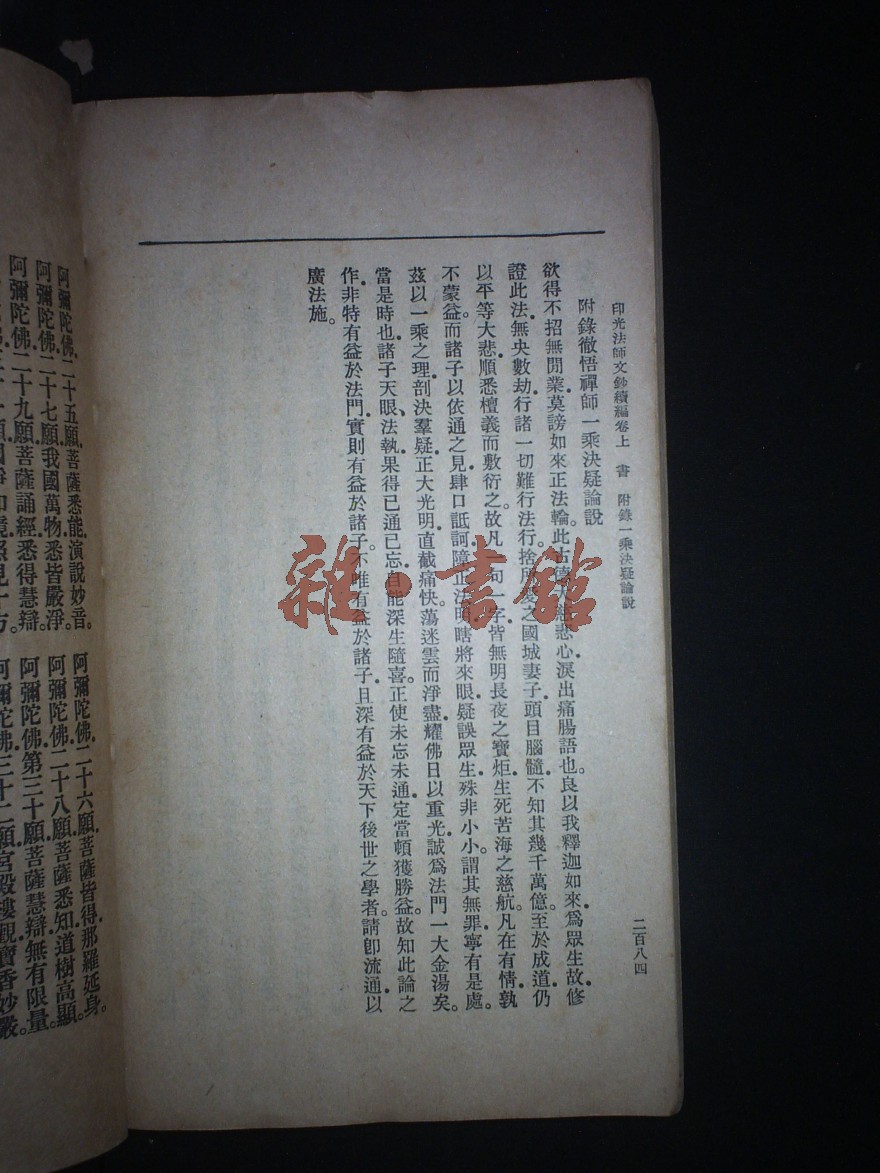 印光法師文鈔續編卷上　書　附錄一乘決疑論說　二百八四
附錄徹悟禪師一乘決疑論說
欲得不招無間業莫謗如來正法輪此古德大慈悲心淚出痛腸語也良以我釋迦如來爲眾生故修
證此法無央數劫行諸一切難行法行捨所愛之國城妻子頭目腦髓不知其幾千萬億至於成道仍
以平等大悲順悉檀義而敷衍之故凡一句一字皆無明長夜之寶炬生死苦海之慈航凡在有情孰
不蒙益而諸子以依通之見肆口詆訶障正法明瞎將來眼疑誤眾生殊非小小謂其無罪寧有是處
茲以一乘之理剖決羣疑正大光明直截痛快蕩迷雲而淨盡耀佛日以重光誠爲法門一大金湯矣
當是時也諸子天眼、法執果得已通已忘自能深生隨喜正使未忘未通定當頓獲勝益故知此論之
作非特有益於法門實則有益於諸子不唯有益於諸子且深有益於天下後世之學者請卽流通以
廣法施。
阿彌陀佛二十五願菩薩悉能演說妙音。阿彌陀佛二十六願菩薩皆得那羅延身。
阿彌陀佛二十七願我國萬物悉皆嚴淨。阿彌陀佛二十八願菩薩悉知道樹高顯。
阿彌陀佛二十九願菩薩誦經悉得慧辯。阿彌陀佛第三十願菩薩慧辯無有限量。
照見十方。阿彌陀佛三十二願宮殿樓觀寶香妙嚴。
雜·書館